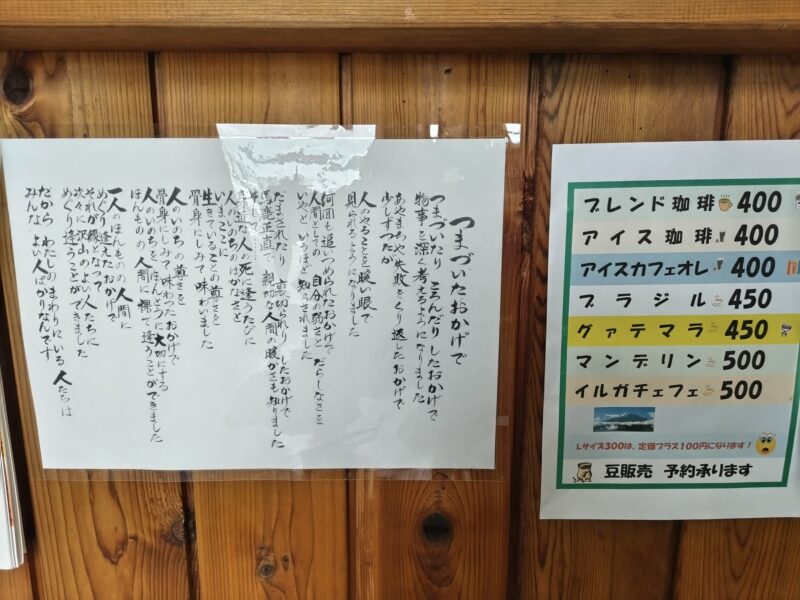 つまづいたおかげで
つまづいたり ころんだり したおかげで
物事を深く考えるようになりました
あやまちや失敗をくり返したおかげで
少しずつだが
人のやることを 暖い眼で
見られるようになりました
何回も追いつめられたおかげで
人間としての 自分の弱さと だらしなさを
いやと いうほど知らされました
だまされたり 裏切られり したおかげで
馬鹿正直で 親切な人間の暖かさも知りました
そして
身近な人の死に逢うたびに
人のいのちのはかなさと
いまここに
生きていることの尊さを
骨身にしみて味わいました
人のいのちの尊さを
骨身にしみて 味わったおかげで
人のいのちを ほんとうに大切にする
ほんものの人間に 裸で逢うことができました
一人のほんものの人間に
めぐり逢えたおかげで
それが縁となり
次々に沢山のよい人たちに
めぐり逢うことができました
だから わたしのまわりにいる人たちは
みんな よい人ばかりなんです
ブレンド珈琲 400
アイス珈琲 400
アイスカフェオレ 400
ブラジル 450
グァテマラ 450
マンデリン 500
イルガチェフェ 500
Lサイズ300は、定価プラス100円になります！
豆販売 予約承ります